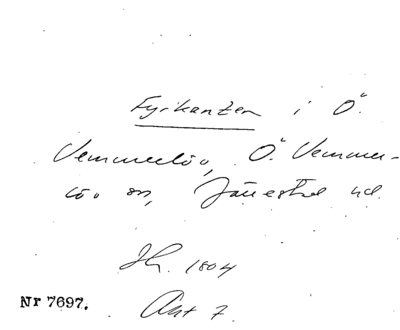 Fyrkanten i Ö.
Vemmerlöv, Ö. Vemmer-
löv sn, Järrestad hd.
Jh. 1804
Akt 7.
Nr 7697.